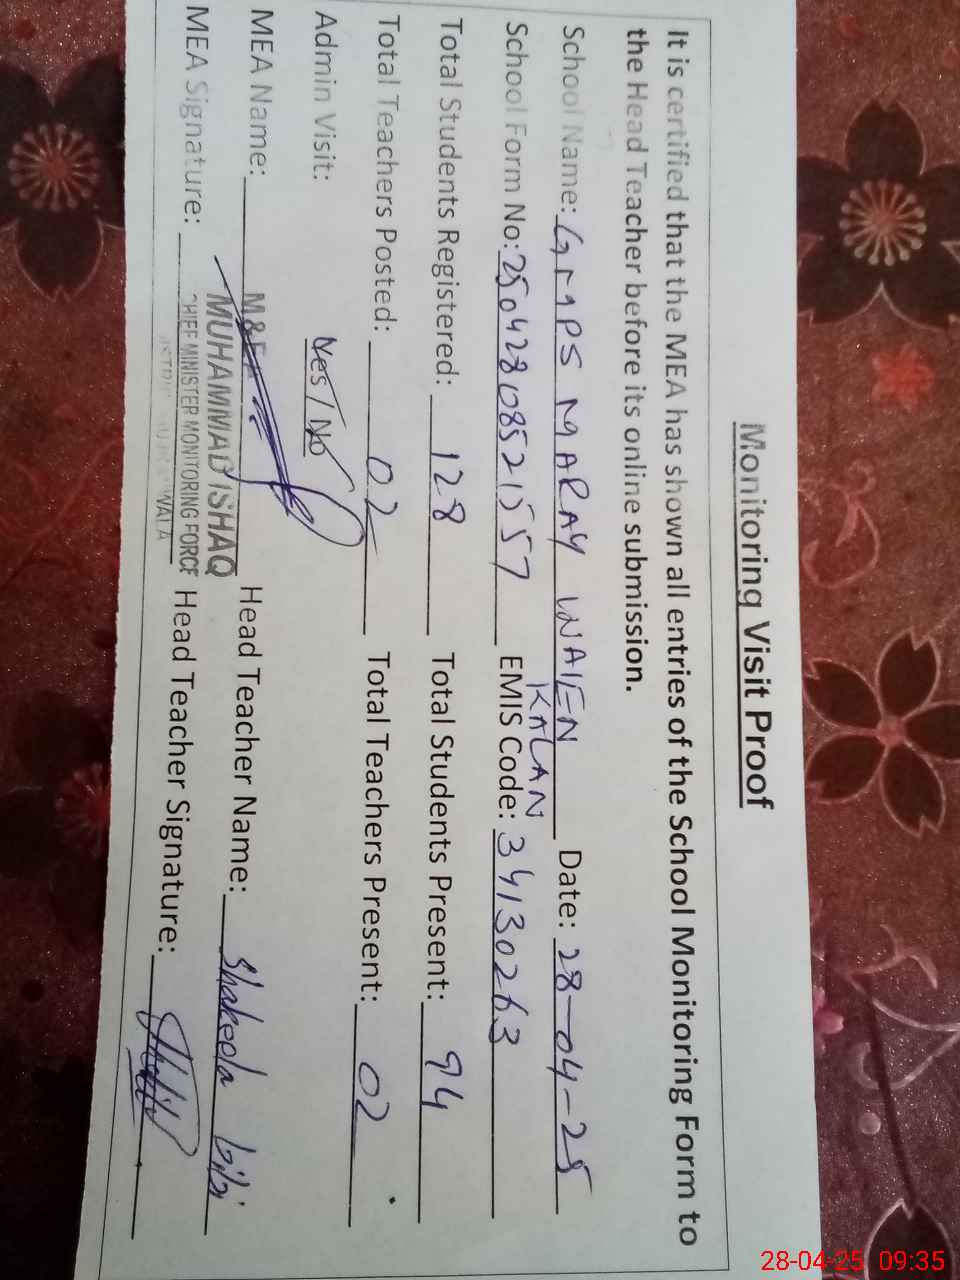 Monitoring Visit Proof
It is certified that the MEA has shown all entries of the School Monitoring Form to
the Head Teacher before its online submission.
School Name: GMPS MARAY WAIEN KALAN Date: 28-04-25
School Form No: 2504280852157 EMIS Code: 34130263
Total Students Registered: 128 Total Students Present: 94
Total Teachers Posted: 02 Total Teachers Present: 02
Admin Visit: Yes / No
MEA Name: MUHAMMAD ISHAQ Head Teacher Name: Shakeela bibi
MEA Signature: CHIEF MINISTER MONITORING FORCE Head Teacher Signature:
28-04-25 09:35